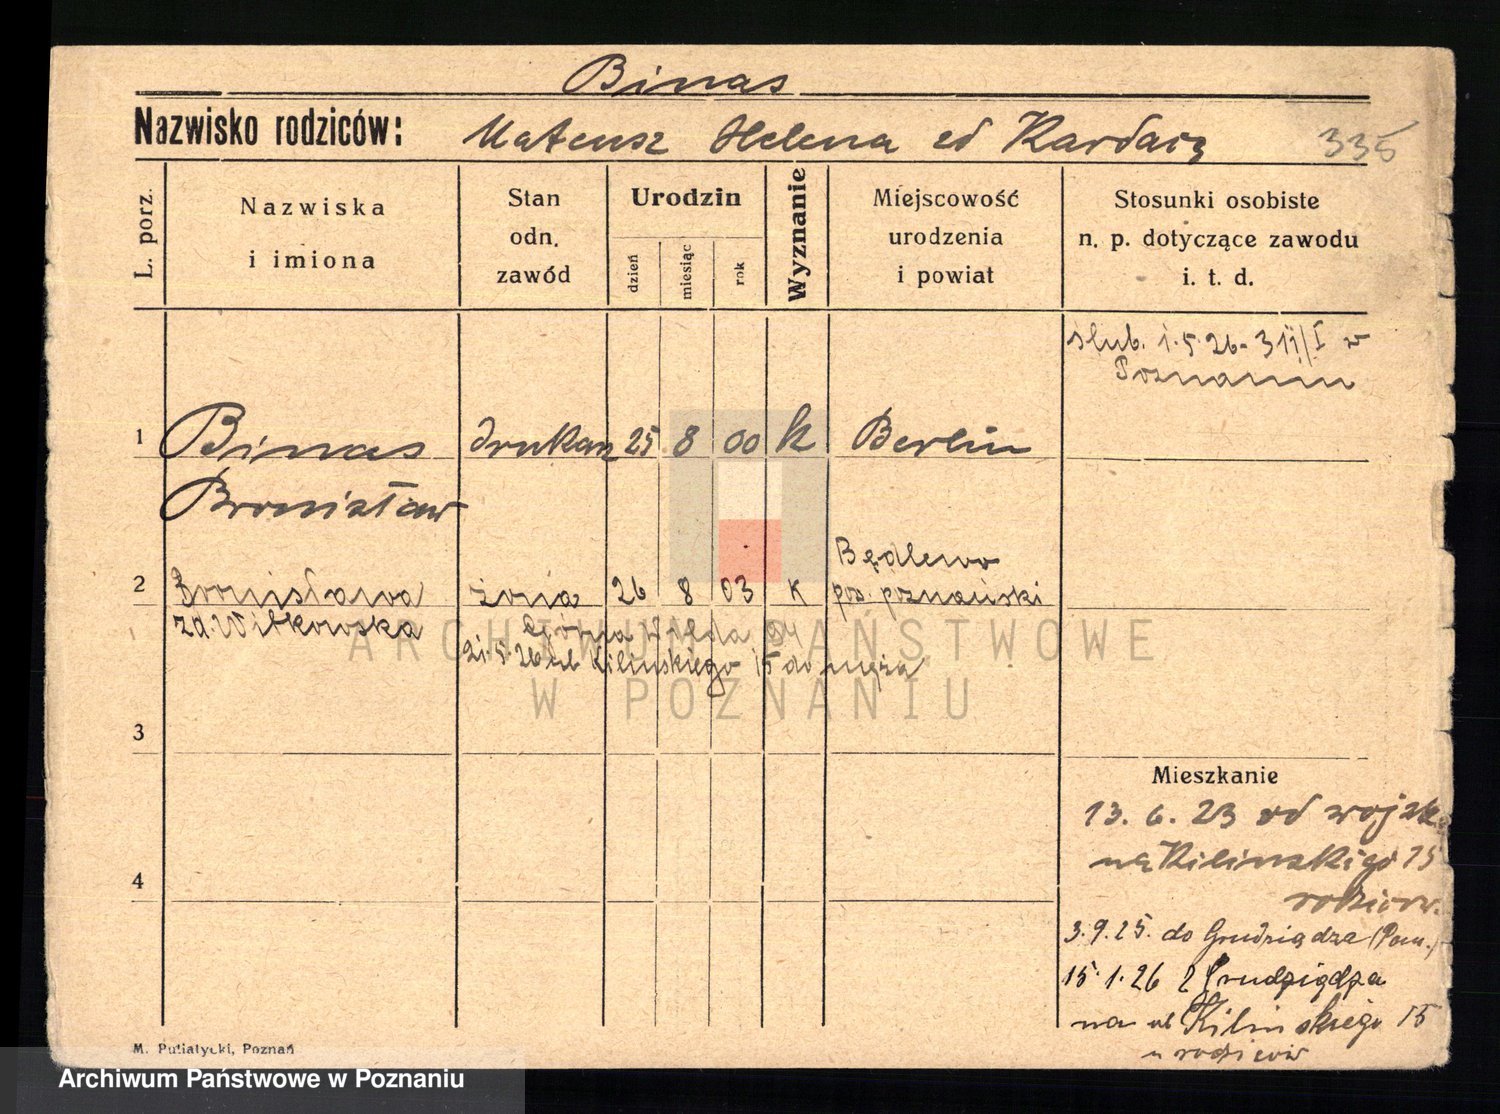 Binas
Nazwisko rodziców: Mateusz Helena zd Kardacz 335
L. porz.
Nazwiska
i imiona
Stan
odn.
zawód
Urodzin
dzień
miesiąc
rok
Wyznanie
Miejscowość
urodzenia
i powiat
Stosunki osobiste
n. p. dotyczące zawodu
i. t. d.
slub. 1.5.26 - 311/I w
Poznaniu
1 Binas drukarz 25 8 00 k Berlin
Bronisław
2 Bronisława żona 26 8 03 k Będlewo
pow. poznański
zd. Witkowska
Górna Wilda
21.5.26 ul Kilinskiego 15 do męża
3
4
Mieszkanie
13. 6. 23 od wojsk.
na Kilinskigo 15
rodzicow.
3.9.25. do Grudziądza (Pom.)
15.1.26 z Grudziądza
na ul Kilinskiego 15
u rodzicow
M. Putiatycki, Poznań
ARCHIWUM PAŃSTWOWE
W POZNANIU
Archiwum Państwowe w Poznaniu